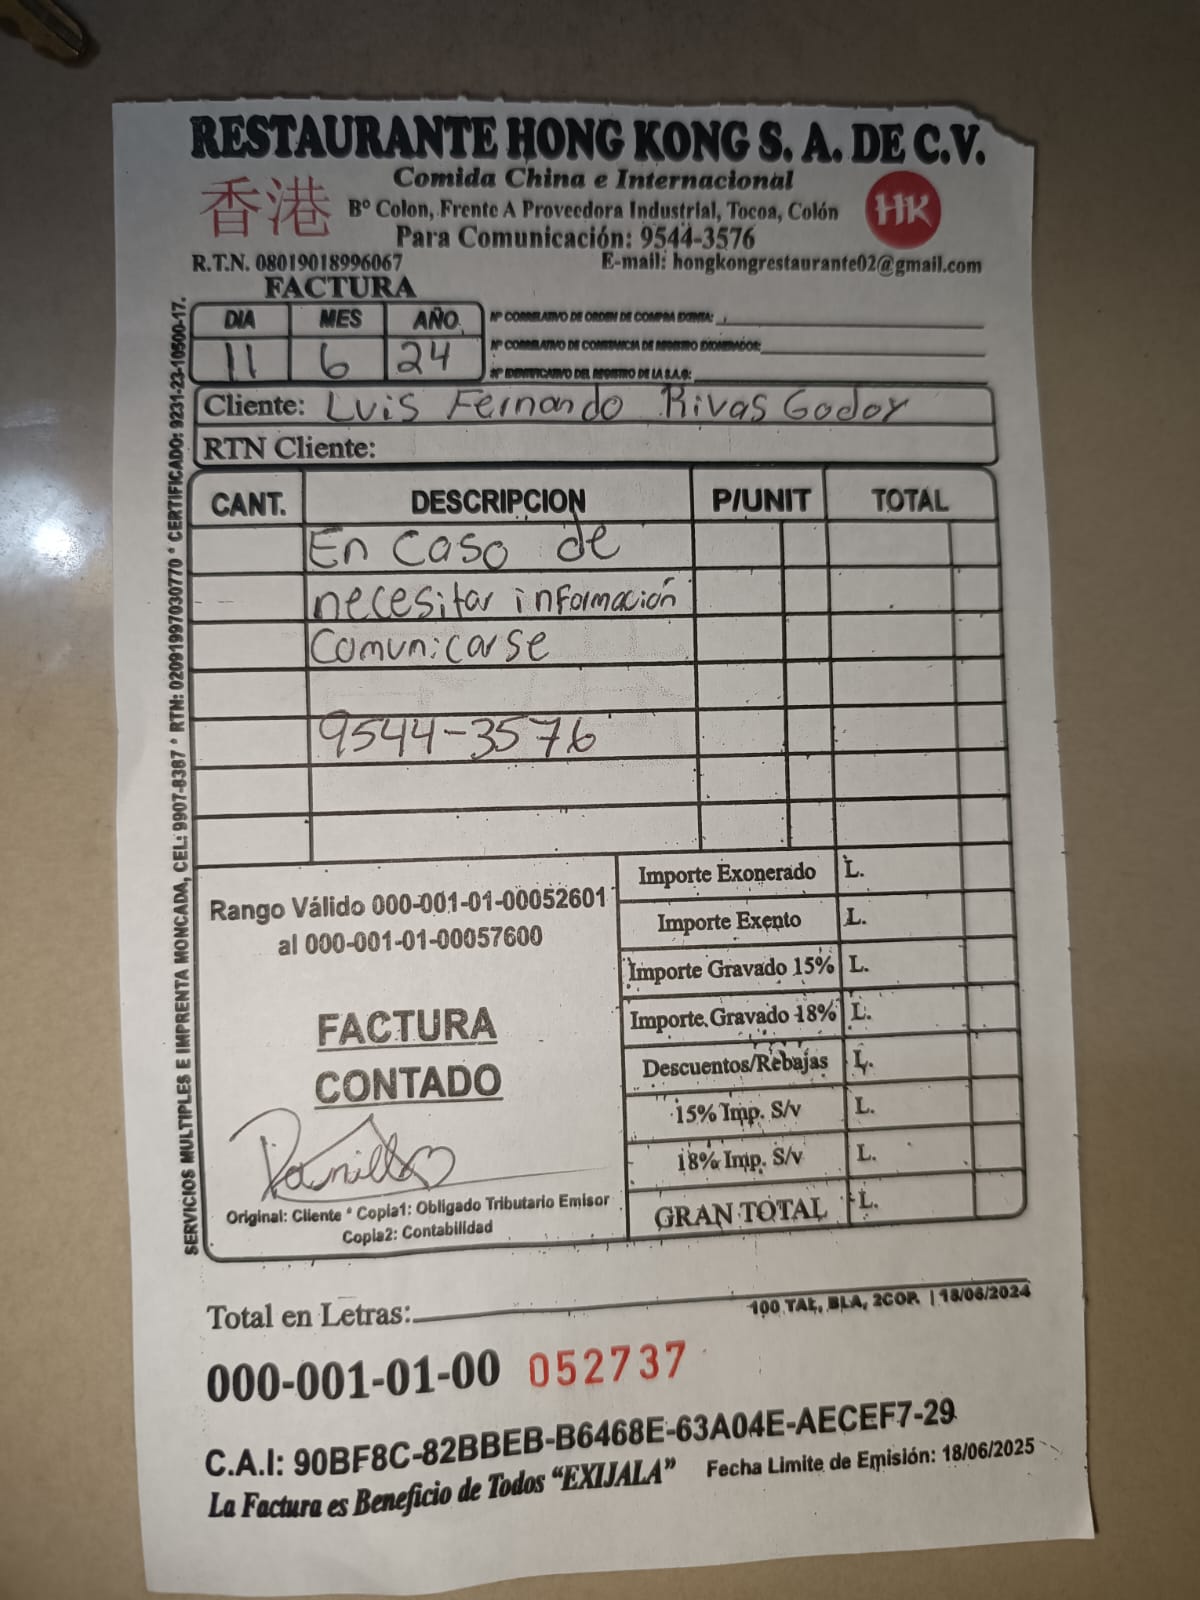 RESTAURANTE HONG KONG S. A. DE C.V.
香港
Comida China e Internacional
B° Colon, Frente A Proveedora Industrial, Tocoa, Colón
HK
Para Comunicación: 9544-3576
R.T.N. 08019018996067
E-mail: hongkongrestaurante02@gmail.com
FACTURA
DIA MES AÑO
11 6 24
Nº CORRELATIVO DE ORDEN DE COMPRA EXENTA:
Nº CORRELATIVO DE CONSTANCIA DE REGISTRO EXONERADOS:
Nº IDENTIFICATIVO DEL REGISTRO DE LA S.A.G:
Cliente: Luis Fernando Rivas Godoy
RTN Cliente:
CANT. DESCRIPCION P/UNIT TOTAL
En caso de
necesitar información
Comunicarse
9544-3576
Rango Válido 000-001-01-00052601
al 000-001-01-00057600
FACTURA
CONTADO
Original: Cliente * Copia1: Obligado Tributario Emisor
Copia2: Contabilidad
Importe Exonerado L.
Importe Exento L.
Importe Gravado 15% L.
Importe Gravado 18% L.
Descuentos/Rebajas L.
15% Imp. S/v L.
18% Imp. S/v L.
GRAN TOTAL L.
SERVICIOS MULTIPLES E IMPRENTA MONCADA, CEL: 9907-8387 * RTN: 02091997030770 * CERTIFICADO: 9231-23-10500-17.
Total en Letras:
100 TAL, BLA, 2COP. | 18/06/2024
000-001-01-00 052737
C.A.I: 90BF8C-82BBEB-B6468E-63A04E-AECEF7-29
La Factura es Beneficio de Todos “EXIJALA” Fecha Limite de Emisión: 18/06/2025